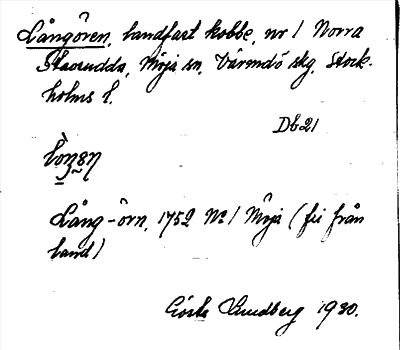 Långören, landfast kobbe, nr 1 Norra
Stavsudda, Möja sn, Värmdö skg, Stock-
holms l.
Db21
Lång-örn, 1752 No 1 Möja (fri från
land)
Gösta Sundberg 1930.